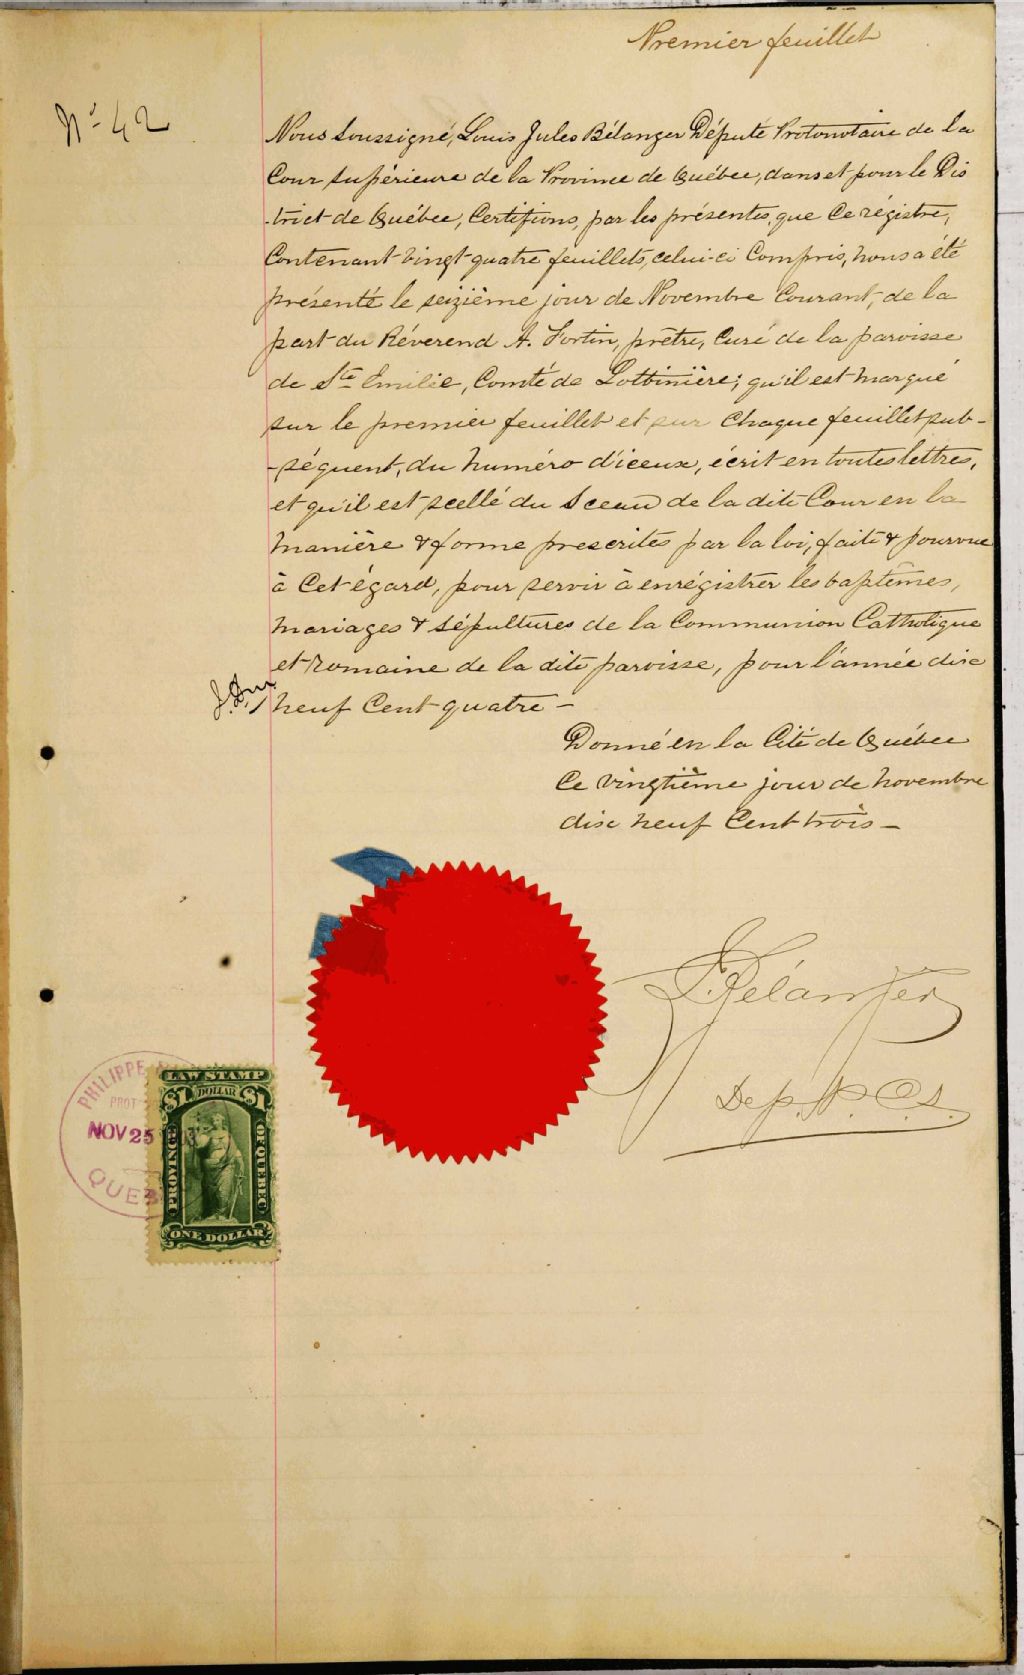 Premier feuillet
No 42
Nous Soussigné, Louis Jules Bélanger Député Protonotaire de la
Cour Supérieure de la Province de Québec, dans et pour le Dis
-trict de Québec, Certifions, par les présentes, que Ce régistre,
Contenant Vingt-quatre feuillets, celui-ci Compris, nous a été
présenté le seizième jour de Novembre Courant, de la
part du Révérend A. Fortin, prêtre, Curé de la paroisse
de Ste Emilie, Comté de Lotbinière; qu'il est marqué
sur le premier feuillet et sur Chaque feuillet sub-
-séquent, du numéro d'iceux, écrit en toutes lettres,
et qu'il est scellé du Sceau de la dite Cour en la
manière & forme prescrites par la loi, faite & pourvue
à Cet égard, pour servir à enrégistrer les baptêmes,
mariages & sépultures de la Communion Catholique
et romaine de la dite paroisse, pour l'année dix
neuf Cent quatre -
Donné en la Cité de Québec
Ce vingtième jour de novembre
dix neuf Cent trois -
Bélanger
Dep. P. C. S.
PHILIPPE
PROT
NOV 25
QUEB
LAW STAMP
$1 DOLLAR $1
PROVINCE OF QUEBEC
ONE DOLLAR